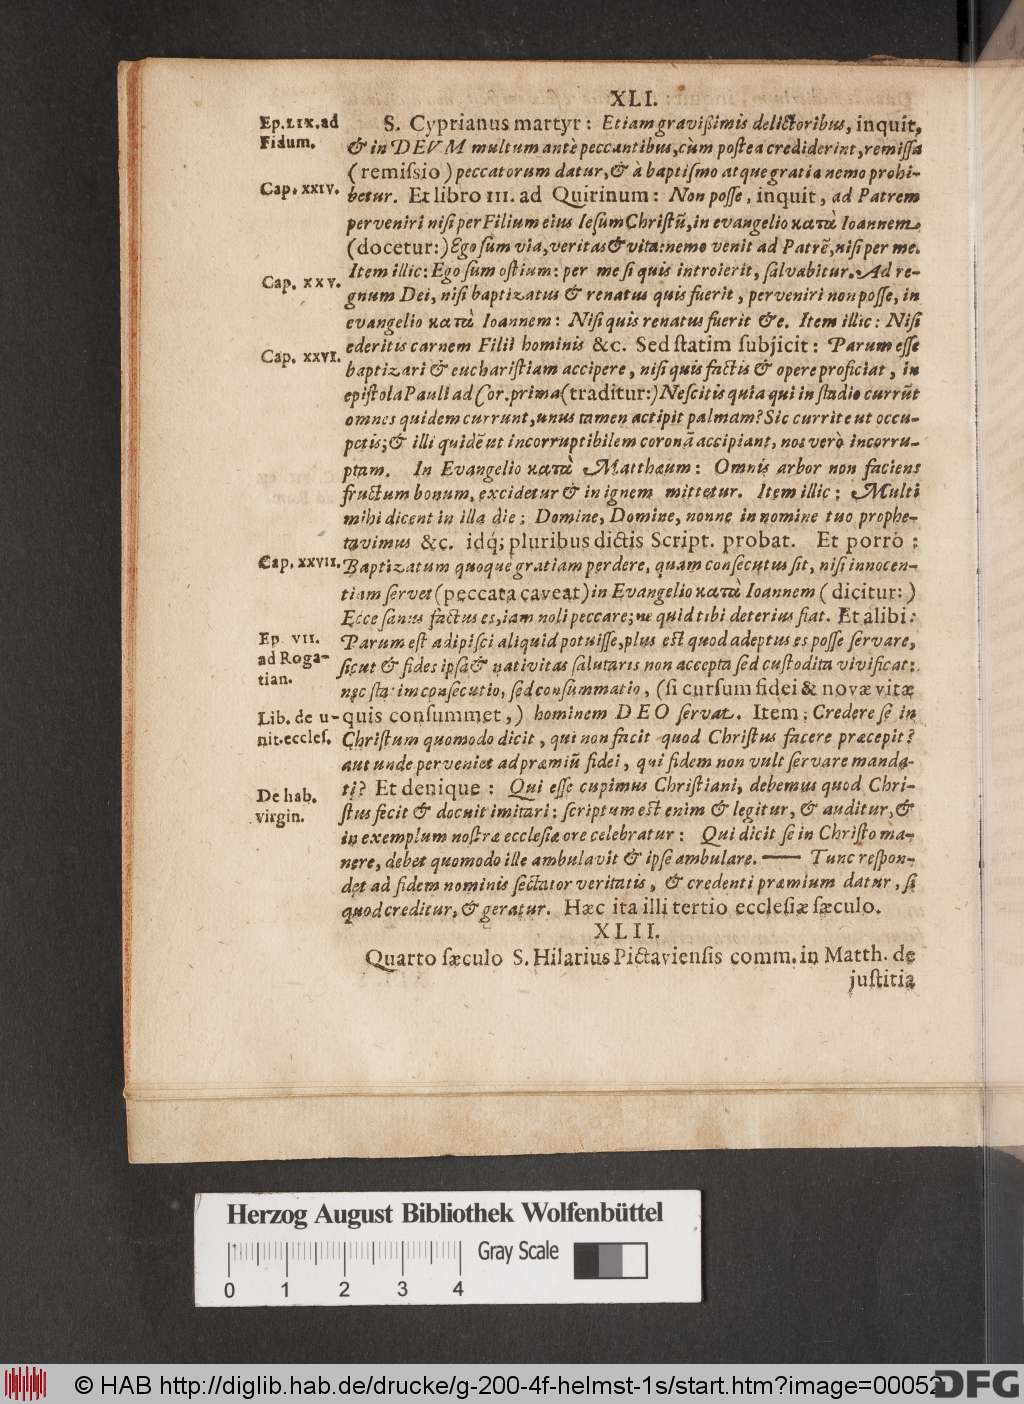 XLI.
Ep. LIX. ad
Fidum.
S. Cyprianus martyr: Etiam gravißimis delictoribus, inquit,
& in DEVM multum antè peccantibus, cùm postea crediderint, remissa
(remissio) peccatorum datur, & à baptismo atque gratia nemo prohi-
Cap. XXIV.
betur. Et libro III. ad Quirinum: Non posse, inquit, ad Patrem
perveniri nisi per Filium eius Iesum Christũ, in evangelio κατὰ Ioannem
(docetur:) Ego sum via, veritas & vita: nemo venit ad Patrẽ, nisi per me.
Item illic: Ego sum ostium: per me si quis introierit, salvabitur. Ad re-
Cap. XXV.
gnum Dei, nisi baptizatus & renatus quis fuerit, perveniri non posse, in
evangelio κατὰ Ioannem: Nisi quis renatus fuerit &c. Item illic: Nisi
ederitis carnem Filii hominis &c. Sed statim subjicit: Parum esse
Cap. XXVI.
baptizari & eucharistiam accipere, nisi quis factis & opere proficiat, in
epistola Pauli ad Cor. prima (traditur:) Nescitis quia qui in stadio currũt
omnes quidem currunt, unus tamen accipit palmam? Sic currite ut occu-
petis; & illi quidẽ ut incorruptibilem coronã accipiant, nos verò incorru-
ptam. In Evangelio κατὰ Matthæum: Omnis arbor non faciens
fructum bonum, excidetur & in ignem mittetur. Item illic: Multi
mihi dicent in illa die: Domine, Domine, nonne in nomine tuo prophe-
tavimus &c. idq́; pluribus dictis Script. probat. Et porrò:
Cap. XXVII.
Baptizatum quoque gratiam perdere, quam consecutus sit, nisi innocen-
tiam servet (peccata caveat) in Evangelio κατὰ Ioannem (dicitur:)
Ecce sanus factus es, iam noli peccare; ne quid tibi deterius fiat. Et alibi:
Ep. VII.
ad Roga-
tian.
Parum est adipisci aliquid potuisse, plus est quod adeptus es posse servare,
sicut & fides ipsa & nativitas salutaris non accepta sed custodita vivificat:
nec statim consecutio, sed consummatio, (si cursum fidei & novæ vitæ
Lib. de u-
nit. eccles.
quis consummet,) hominem DEO servat. Item: Credere se in
Christum quomodo dicit, qui non facit quod Christus facere præcepit?
aut unde perveniet ad præmiũ fidei, qui fidem non vult servare manda-
ti? Et denique: Qui esse cupimus Christiani, debemus quod Chri-
De hab.
virgin.
stus fecit & docuit imitari: scriptum est enim & legitur, & auditur, &
in exemplum nostræ ecclesiæ ore celebratur: Qui dicit se in Christo ma-
nere, debet quomodo ille ambulavit & ipse ambulare. — Tunc respon-
det ad fidem nominis sectator veritatis, & credenti præmium datur, si
quod creditur, & geratur. Hæc ita illi tertio ecclesiæ sæculo.
XLII.
Quarto sæculo S. Hilarius Pictaviensis comm. in Matth. de
justitia
Herzog August Bibliothek Wolfenbüttel
Gray Scale
0 1 2 3 4
© HAB http://diglib.hab.de/drucke/g-200-4f-helmst-1s/start.htm?image=00052
DFG